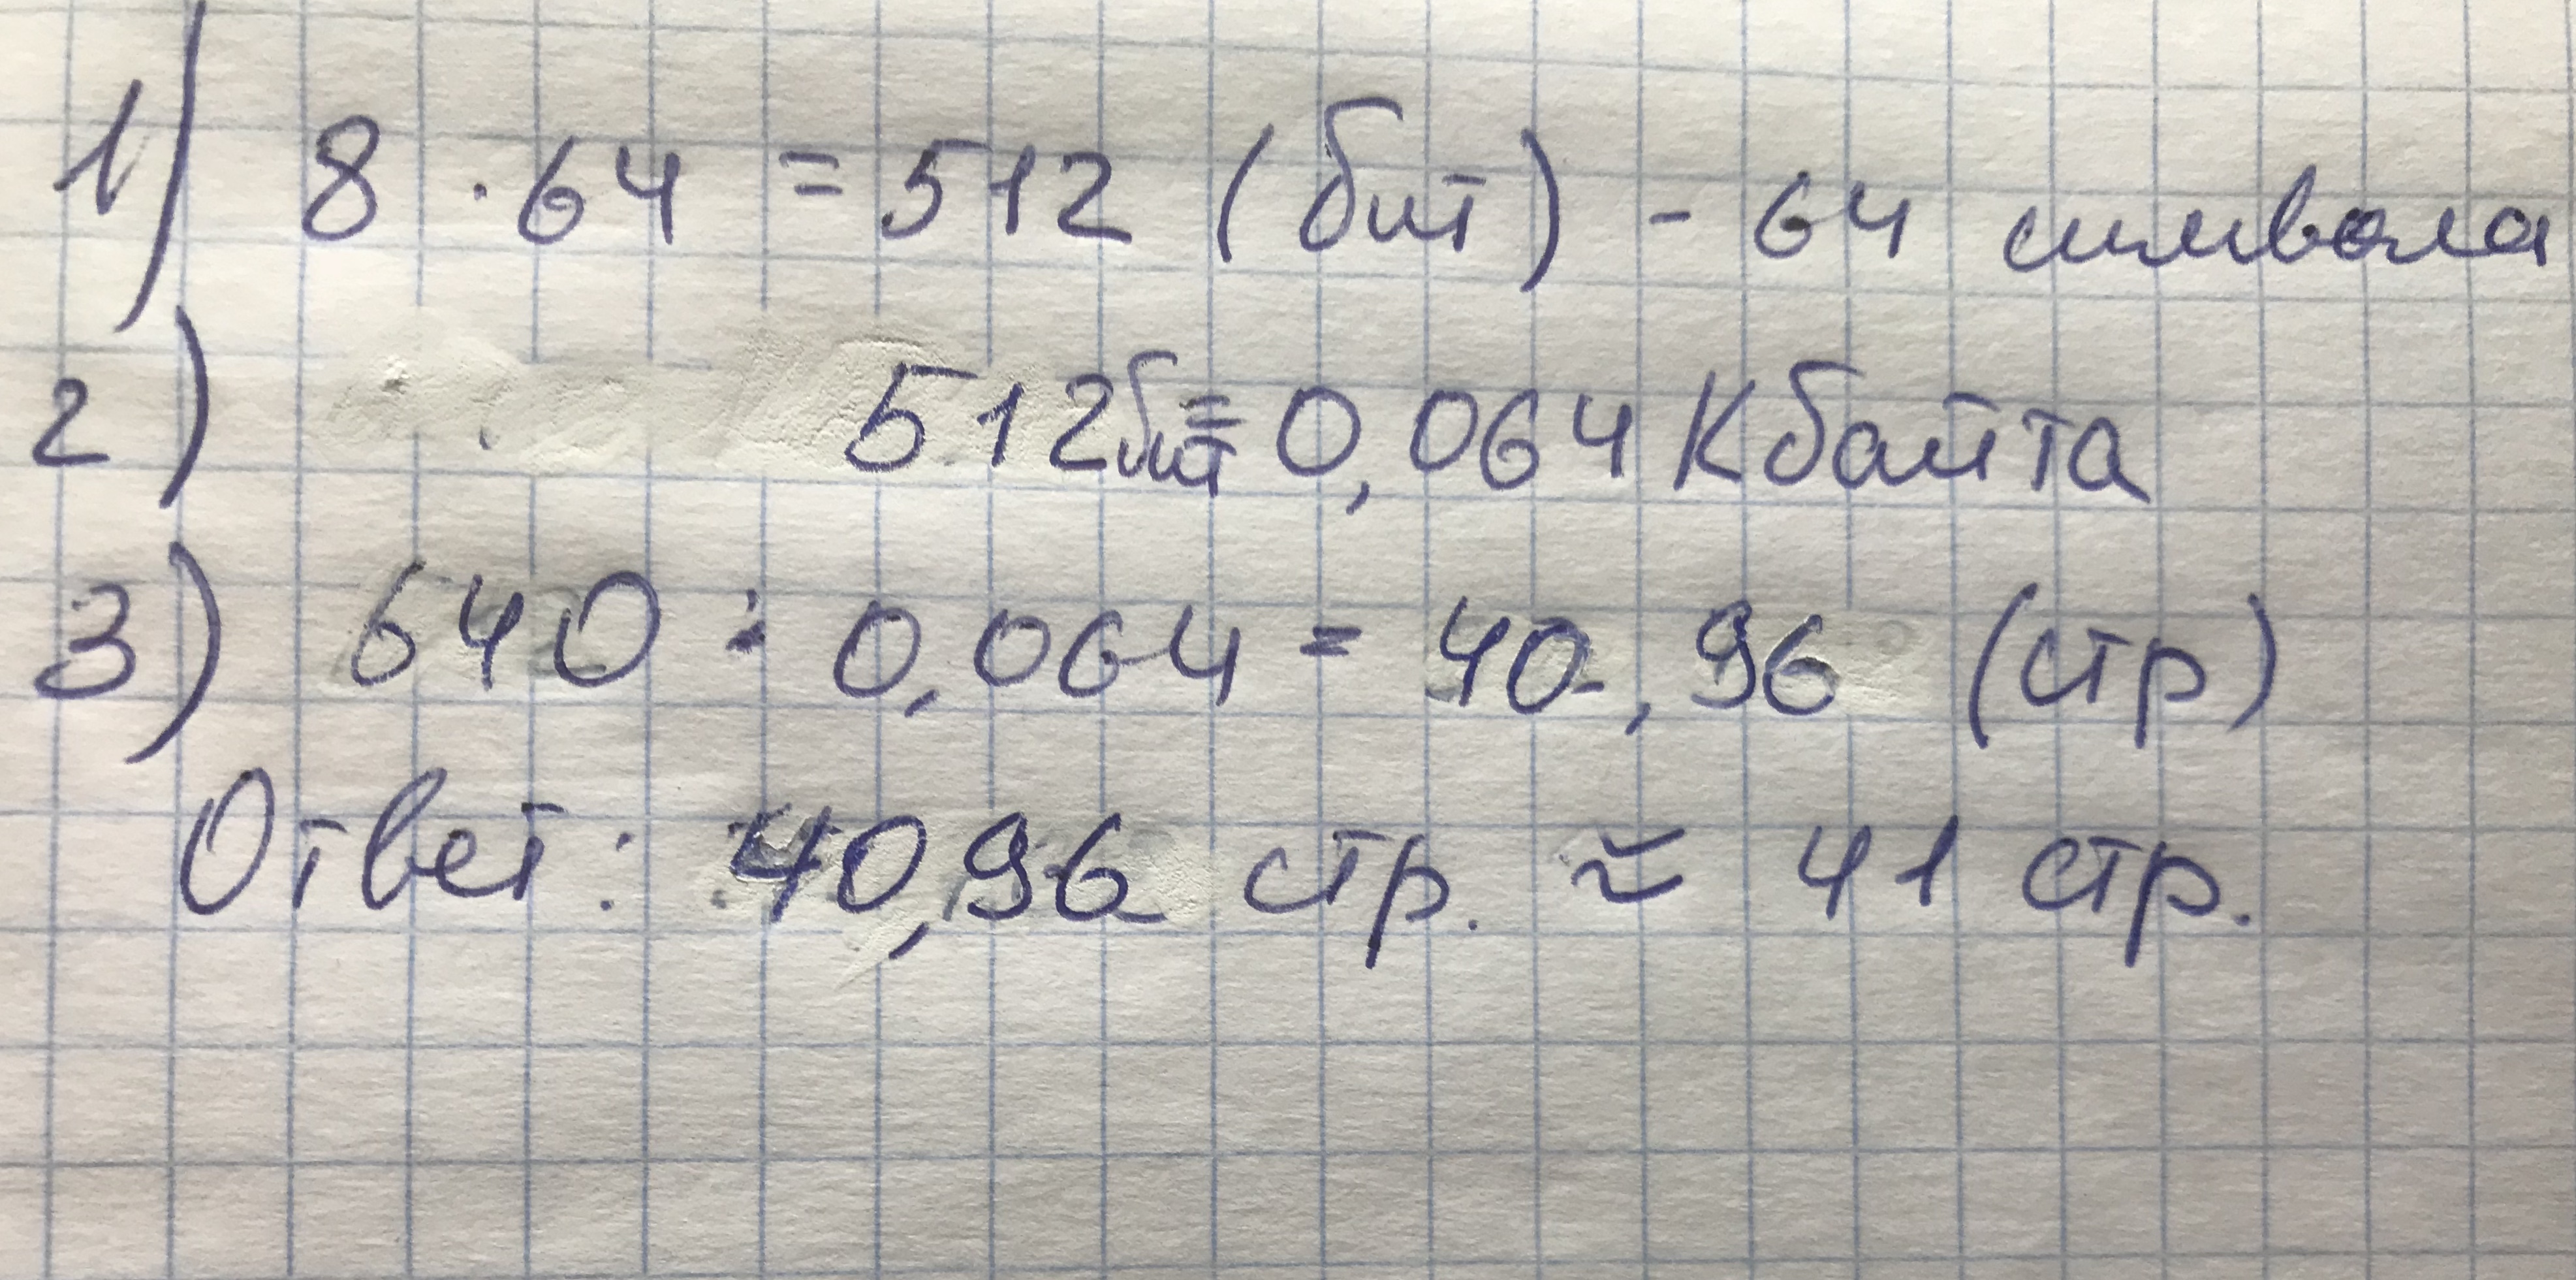 1) 8 · 64 = 512 (бит) - 64 символа
2) 512бит = 0,064 Кбайта
3) 640 : 0,064 = 40,96 (стр)
Ответ: 40,96 стр. ≈ 41 стр.